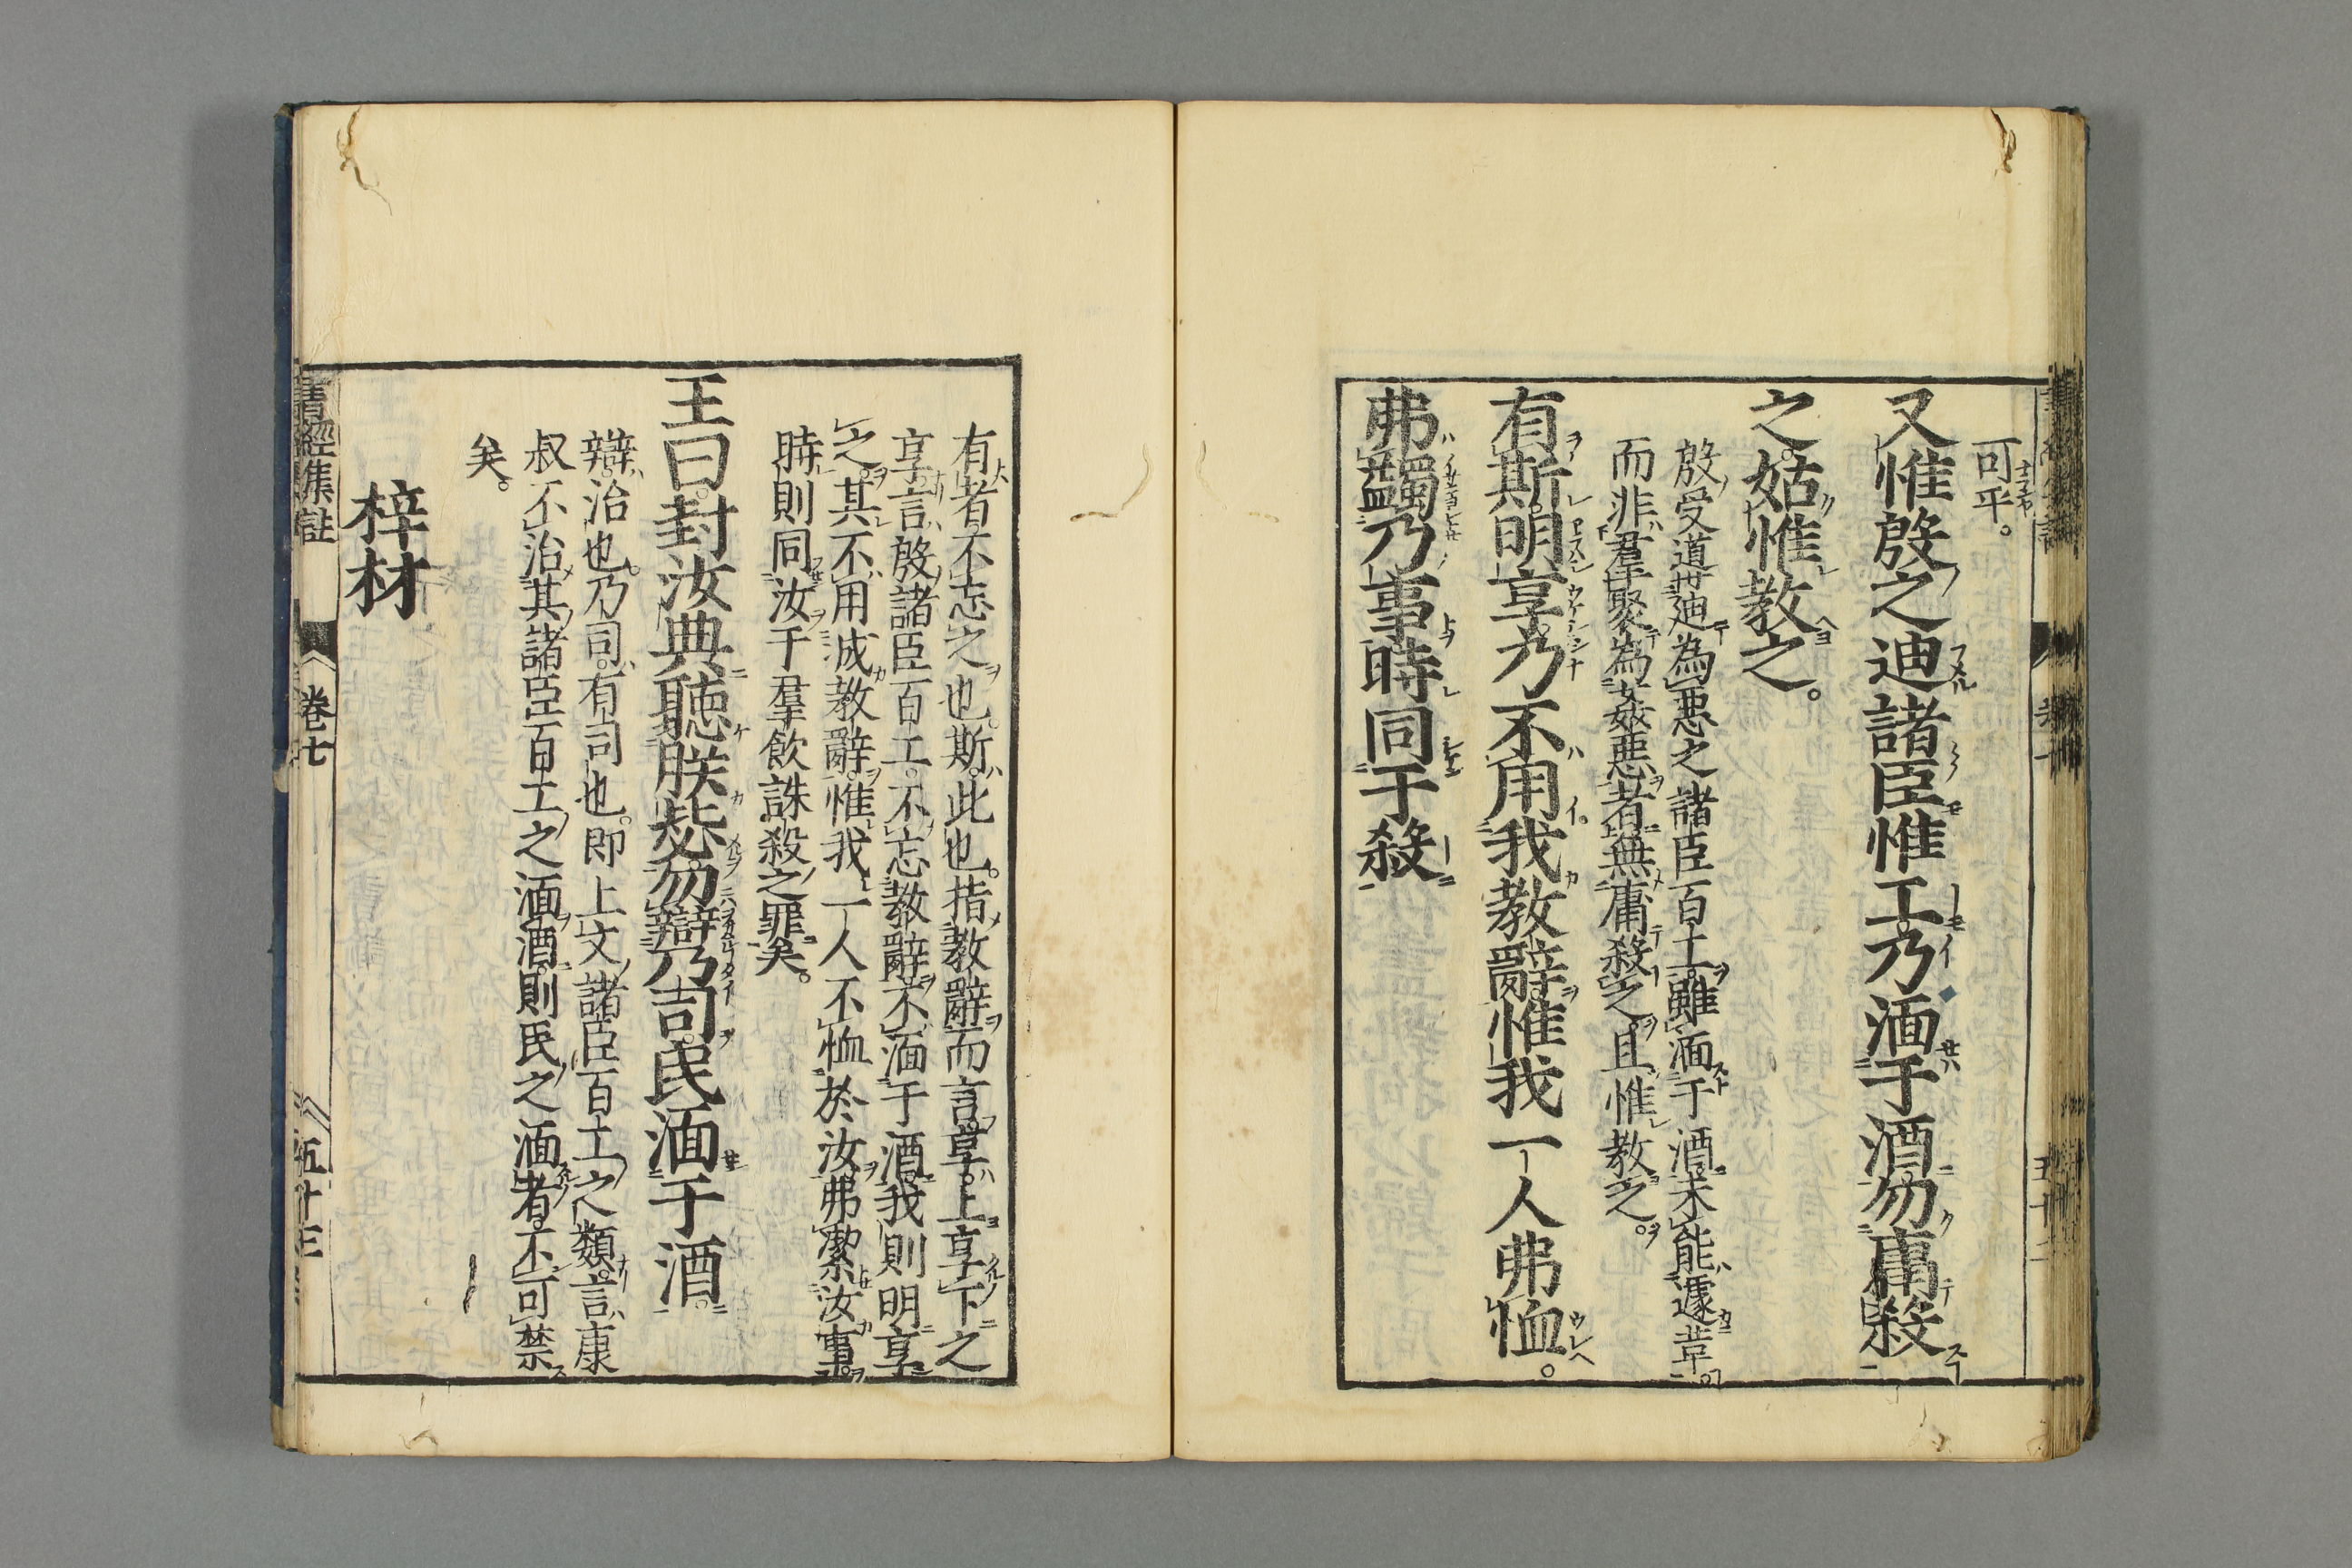 可乎。
又惟殷之迪諸臣惟工乃湎于酒勿庸殺
之姑惟教之。
殷受道世迪為悪之諸臣百工雖湎于酒未能遽革
而非羣聚為姦惡者無庸殺之且惟教之。
有斯明享乃不用我教辭惟我一人弗恤。
弗蠲乃事時同于殺
有者不忘之也。斯此也。指教辭而言享上享下之
享言殷諸臣百工。不忘教辭不湎于酒我則明享
之其不用戒教辭惟我一人不恤於汝弗潔汝事
時則同汝于羣飲誅殺之罪矣。
王曰封汝典聽朕毖勿辯乃司民湎于酒
辯治也。乃司有司也。即上文諸臣百工之類。言康
叔不治其諸臣百工之湎酒則民之湎者不可禁
矣。
梓材
書經集註 卷七 五十三